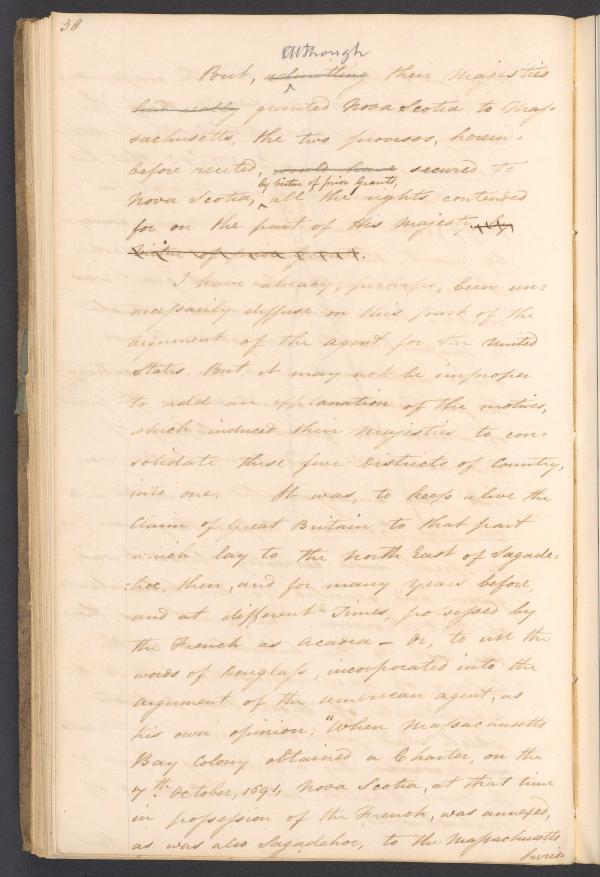 30
although
But, admitting their Majesties
had really granted Nova Scotia to Mas-
sachusetts, the two provisos, herein-
before recited, would have secured to
by virtue of prior Grants,
Nova Scotia, all the rights contended
for on the part of His Majesty. by
virtue of prior grant.
I have already, perhaps, been un=
necessarily diffuse on this part of the
argument of the agent for the United
States. But it may not be improper
to add an explanation of the motives,
which induced their Majesties to con=
solidate these five Districts of Country,
into one. It was, to keep alive the
Claim of Great Britain to that part
which lay to the North East of Sagade=
=hoc, then, and for many years before,
and at different Times, possessed by
the French as Acadia - Or, to use the
words of Douglass, incorporated into the
argument of the american agent, as
his own opinion, "When Massachusetts
Bay Colony obtained a Charter, on the
7th October, 1691, Nova Scotia, at that time
in possession of the French, was annexed,
as was also Sagadehoc, to the Massachusetts